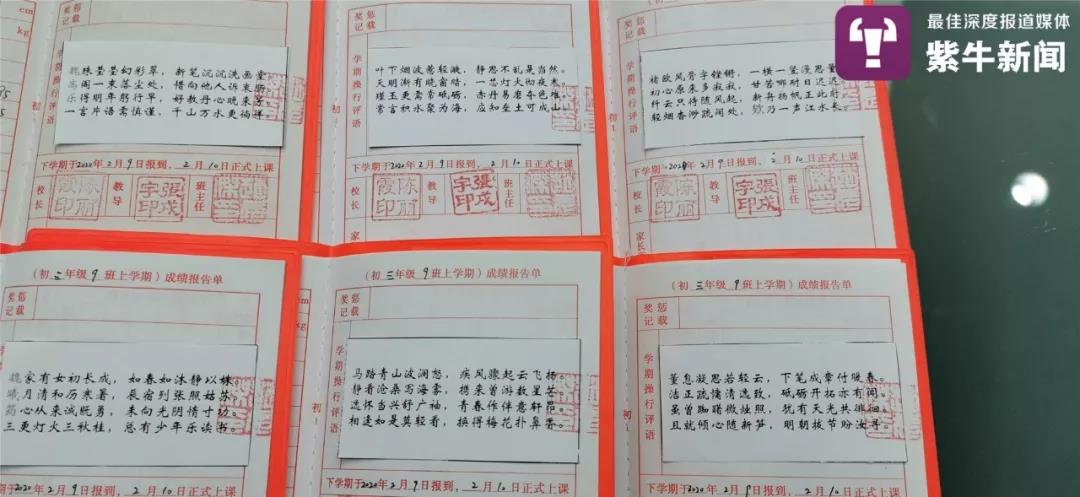 最佳深度报道媒体
紫牛新闻
cm
kg
奖惩记载
学期操行评语
魏珠墨墨幻彩翠，新笔沉沉洗画堂
闹一束落尘处，惜向他人诉衷肠
乐得明年躬行早，好教丹心晚来芳
一言片语需慎谨，千山万水更祯祥
下学期于2020年2月9日报到，2月10日正式上课
校长
陈丽霞印
教导
張成宇印
班主任
奖惩记载
学期操行评语
叶下烟波蓄轻漪，静思不乱是当然。
天明渐有晓窗晴，一芯灯火彻夜来
瑾玉更需常砥砺，赤丹易磨夺色难
常言积水聚为海，应知垒土可成山。
下学期于2020年2月9日报到，2月10日正式上课
校长
陈丽霞印
教导
張成宇印
班主任
初
奖惩记载
学期操行评语
褚欧风骨字铿锵，一横一竖漫思量
初心原来多寂寂，甘苦哪时日迟迟
纤云只待随风起，新舟扬帆正此时
轻烟香渺疏闹处，欸乃一声江水长
下学期2020年2月9日报到，2月10日正式上课
校长
陈丽霞印
教导
張成宇印
班主任
家长
初
（初三年级9班上学期）成绩报告单
奖惩记载
学期操行评语
魏家有女初长成，如春如沐静以姝。
曦月清和历寒暑，辰宿列张照姑苏。
筠心从来诚既勇，来向光阴惜寸功。
三更灯火三秋桂，总有少年乐读书。
下学期于2020年2月9日报到，2月10日正式上课
cm
kg
初
（初三年级9班上学期）成绩报告单
奖惩记载
学期操行评语
马踏青山波澜愁，疾风骤起云飞扬。
静看沧桑写海雾，携来曾游数星芒
逸怀当兴舒广袖，青春作伴意轩昂
相逢如是莫轻看，换得梅花扑鼻香。
下学期于2020年2月9日报到，2月10日正式上课
初
（初三年级9班上学期）成绩报告单
奖惩记载
学期操行评语
董怠凝思若轻云，下笔成章付暖春。
洁正疏慵清逸致，砥砺开拓亦有闻。
虽曾踟蹰微烛照，犹有天光共徘徊
且就倾心随新笋，明朝拔节盼汝寻。
下学期于2020年2月9日报到，2月10日正式上课